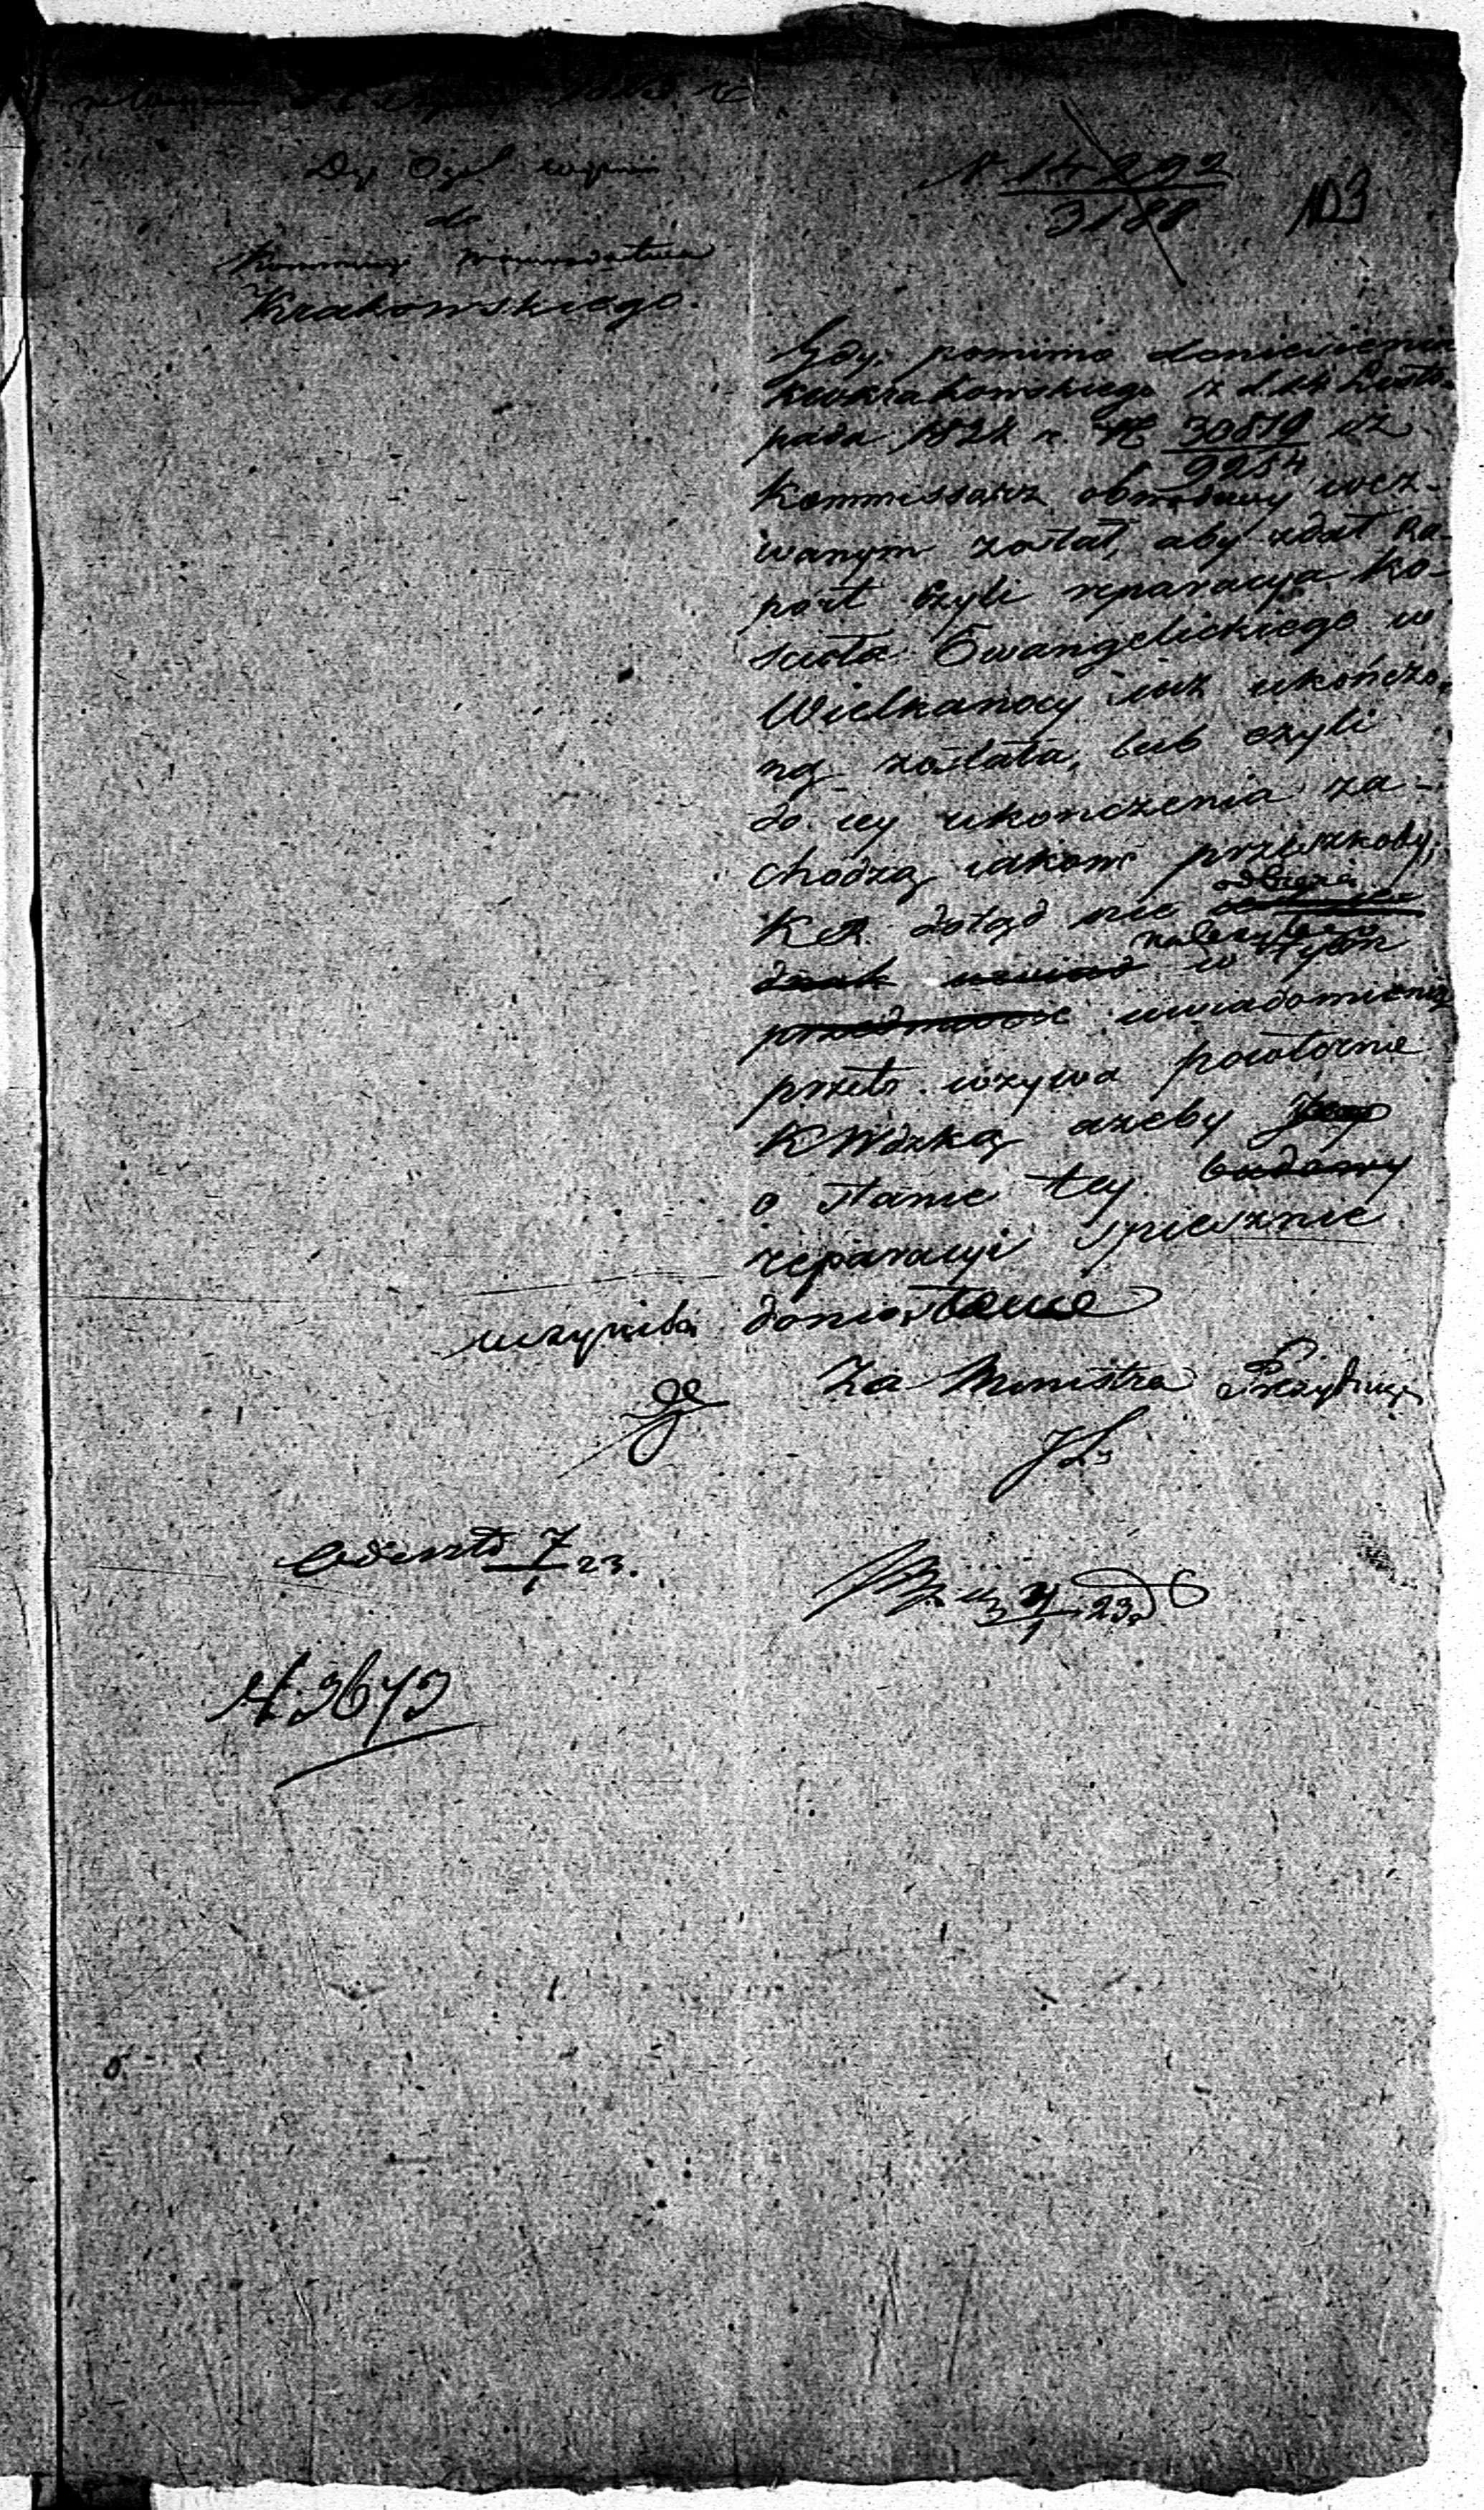 do
Kommissyi Woiewództwa
Krakowskiego.
N 14292
3188
103
Gdy pomimo doniesienia
KWKrakowskiego z d. 14 Listo-
pada 1822 r. N 30819 iż
9254
Kommissarz obwodowy wez-
wanym został, aby zdał Ra-
port czyli reparacya Ko-
scioła Ewangelickiego w
Wielkanocy iuż ukończo-
ną została, lub czyli
do iey ukonczenia za-
chodzą iakowe przeszkody,
KR dotąd nie odbiera
należytego
w tym
przedmiocie uwiadomienia
przeto wzywa powtornie
KWdzką ażeby
o stanie tey budowy
reparacyi spiesznie
uczyniła doniesienie
Za Ministra Prezyduią
Odeszło 7/1 23.
N. 3673